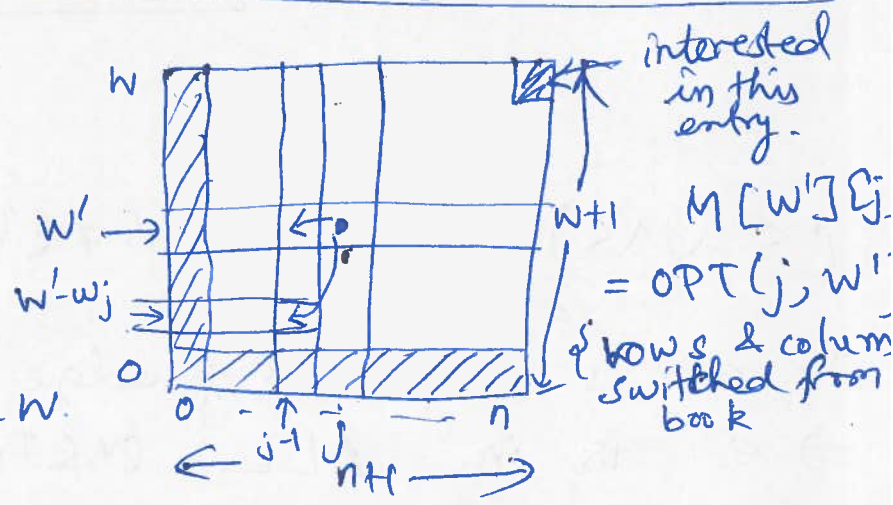 W
interested
in this
entry.
W' →
W+1
M[W'][j
= OPT(j, W'
W'-wj →
{ rows & colum
switched from
book
0
W.
0 - j-1 j — n
n+1